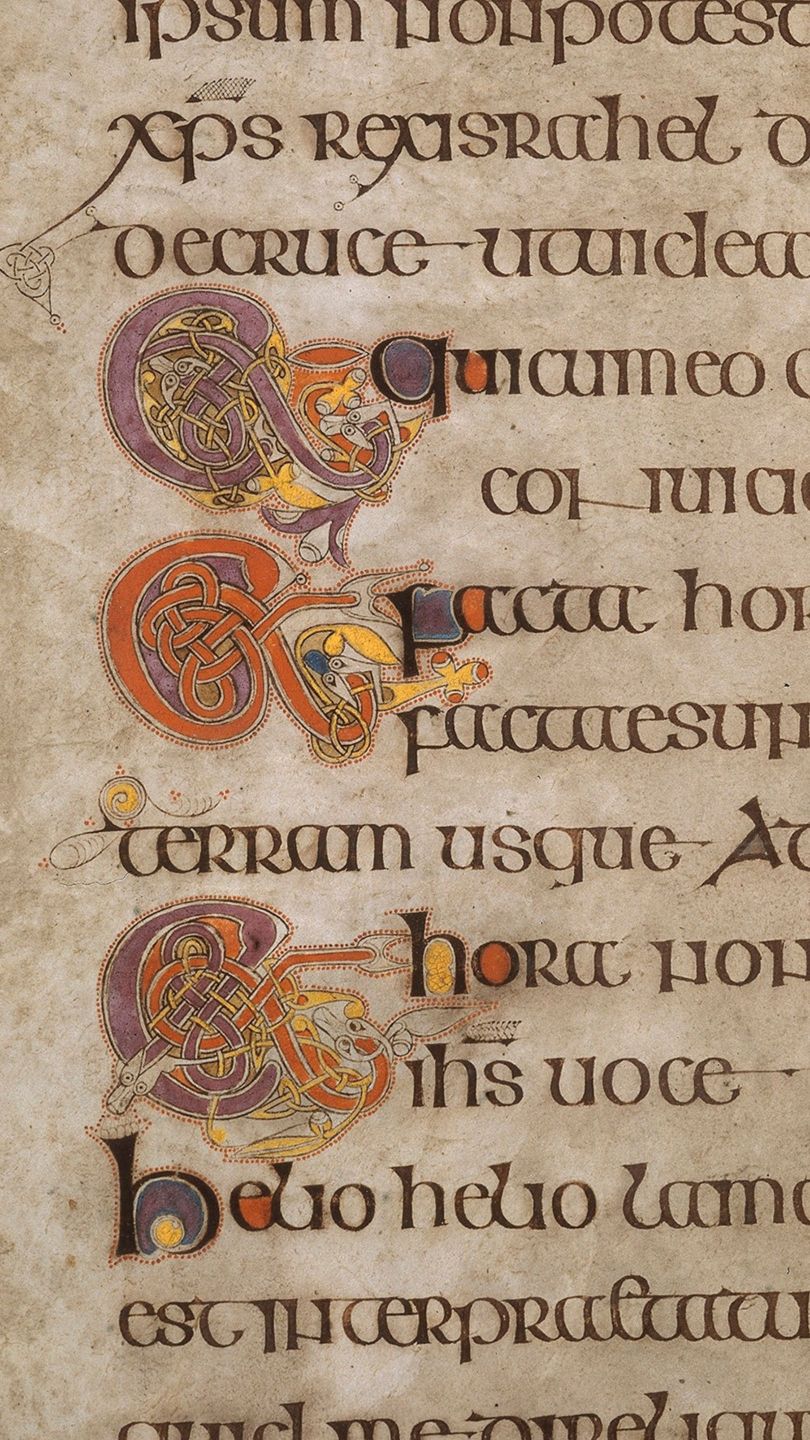 ipsum non potest
xp̄s rex israhel d
decruce utuidea
Et qui cum eo c
conuicia
Et facta hor
factaesun
terram usque At
Et hora non
ih̄s uoce
helio helio lama
est interpraetatu
quid me direliqu